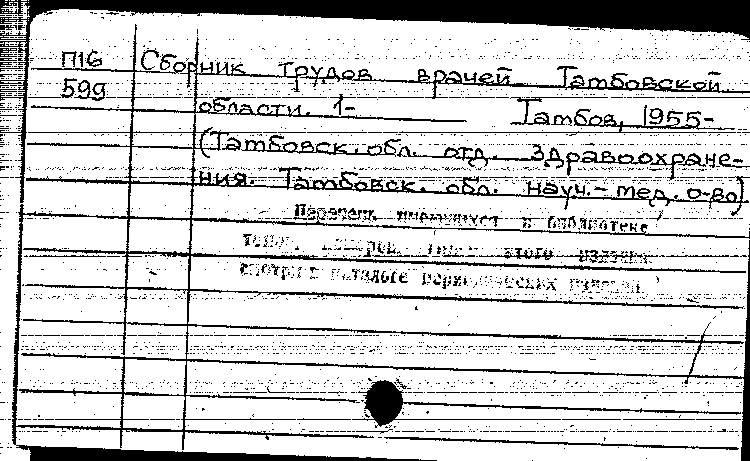 П16 Сборник трудов врачей Тамбовской
599 области. 1- Тамбов, 1955-
(Тамбовск. обл. отд. здравоохране-
ния. Тамбовск. обл. науч.-мед. о-во)
Перечень имеющихся в библиотеке
томов, номеров этого издания
смотри в каталоге периодических изданий.